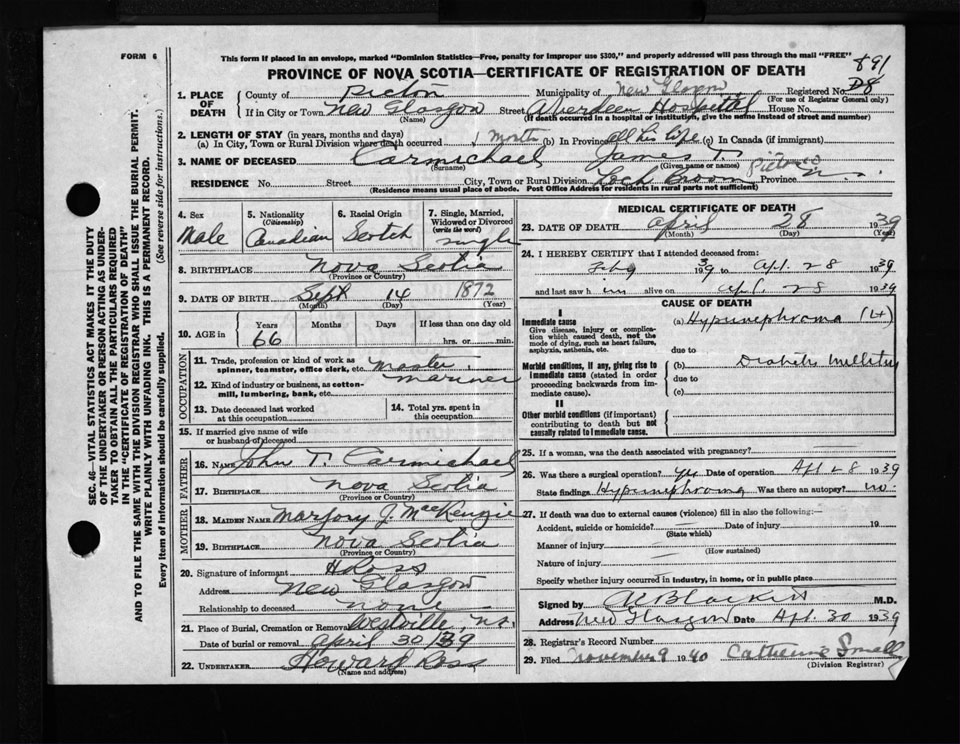 FORM 6
This form if placed in an envelope, marked "Dominion Statistics—Free, penalty for improper use $300," and properly addressed will pass through the mail "FREE"
891
PROVINCE OF NOVA SCOTIA—CERTIFICATE OF REGISTRATION OF DEATH
D8
1. PLACE OF DEATH
County of Pictou Municipality of New Glasgow Registered No.
(For use of Registrar General only)
If in City or Town New Glasgow Street Aberdeen Hospital House No.
(Name) (If death occurred in a hospital or institution, give the name instead of street and number)
2. LENGTH OF STAY (in years, months and days)
(a) In City, Town or Rural Division where death occurred 1 month (b) In Province all his life (c) In Canada (if immigrant)
3. NAME OF DECEASED Carmichael James T.
(Surname) (Given name or names)
RESIDENCE No. Street City, Town or Rural Division Loch Broom Pictou Co Province N.S.
(Residence means usual place of abode. Post Office Address for residents in rural parts not sufficient)
4. Sex
Male
5. Nationality
(Citizenship)
Canadian
6. Racial Origin
Scotch
7. Single, Married, Widowed or Divorced
(write the word)
single
8. BIRTHPLACE Nova Scotia
(Province or Country)
9. DATE OF BIRTH Sept 14 1872
(Month) (Day) (Year)
10. AGE in
Years Months Days If less than one day old
66 hrs. or min.
OCCUPATION
11. Trade, profession or kind of work as spinner, teamster, office clerk, etc. Master mariner
12. Kind of industry or business, as cotton-mill, lumbering, bank, etc.
13. Date deceased last worked at this occupation
14. Total yrs. spent in this occupation
15. If married give name of wife or husband of deceased
FATHER
16. NAME John T. Carmichael
17. BIRTHPLACE Nova Scotia
(Province or Country)
MOTHER
18. MAIDEN NAME Marjory J. MacKenzie
19. BIRTHPLACE Nova Scotia
(Province or Country)
20. Signature of informant H Ross
Address New Glasgow
Relationship to deceased none
21. Place of Burial, Cremation or Removal Westville, N.S.
Date of burial or removal April 30/39
22. UNDERTAKER Howard Ross
(Name and address)
MEDICAL CERTIFICATE OF DEATH
23. DATE OF DEATH April 28 1939
(Month) (Day) (Year)
24. I HEREBY CERTIFY that I attended deceased from:
Feb 9 39 to Apl. 28 1939
and last saw him alive on Apl. 28 1939
CAUSE OF DEATH
I
Immediate cause
Give disease, injury or complication which caused death, not the mode of dying, such as heart failure, asphyxia, asthenia, etc.
(a) Hypernephroma (Lt)
due to
Morbid conditions, if any, giving rise to immediate cause (stated in order proceeding backwards from immediate cause).
(b) Diabetes mellitus
due to
(c)
II
Other morbid conditions (if important) contributing to death but not causally related to immediate cause.
25. If a woman, was the death associated with pregnancy?
26. Was there a surgical operation? yes Date of operation Apl 28 1939
State findings Hypernephroma Was there an autopsy? no.
27. If death was due to external causes (violence) fill in also the following:—
Accident, suicide or homicide? Date of injury 19
(State which)
Manner of injury
(How sustained)
Nature of injury
Specify whether injury occurred in industry, in home, or in public place
Signed by M.D.
Address New Glasgow Date Apl. 30 1939
28. Registrar's Record Number
29. Filed November 9 1940 Catherine Small
(Division Registrar)
SEC. 46—VITAL STATISTICS ACT MAKES IT THE DUTY
OF THE UNDERTAKER OR PERSON ACTING AS UNDER-
TAKER TO OBTAIN ALL THE PARTICULARS REQUIRED
IN THE "CERTIFICATE OF REGISTRATION OF DEATH"
AND TO FILE THE SAME WITH THE DIVISION REGISTRAR WHO SHALL ISSUE THE BURIAL PERMIT.
WRITE PLAINLY WITH UNFADING INK. THIS IS A PERMANENT RECORD.
Every item of information should be carefully supplied. (See reverse side for instructions.)